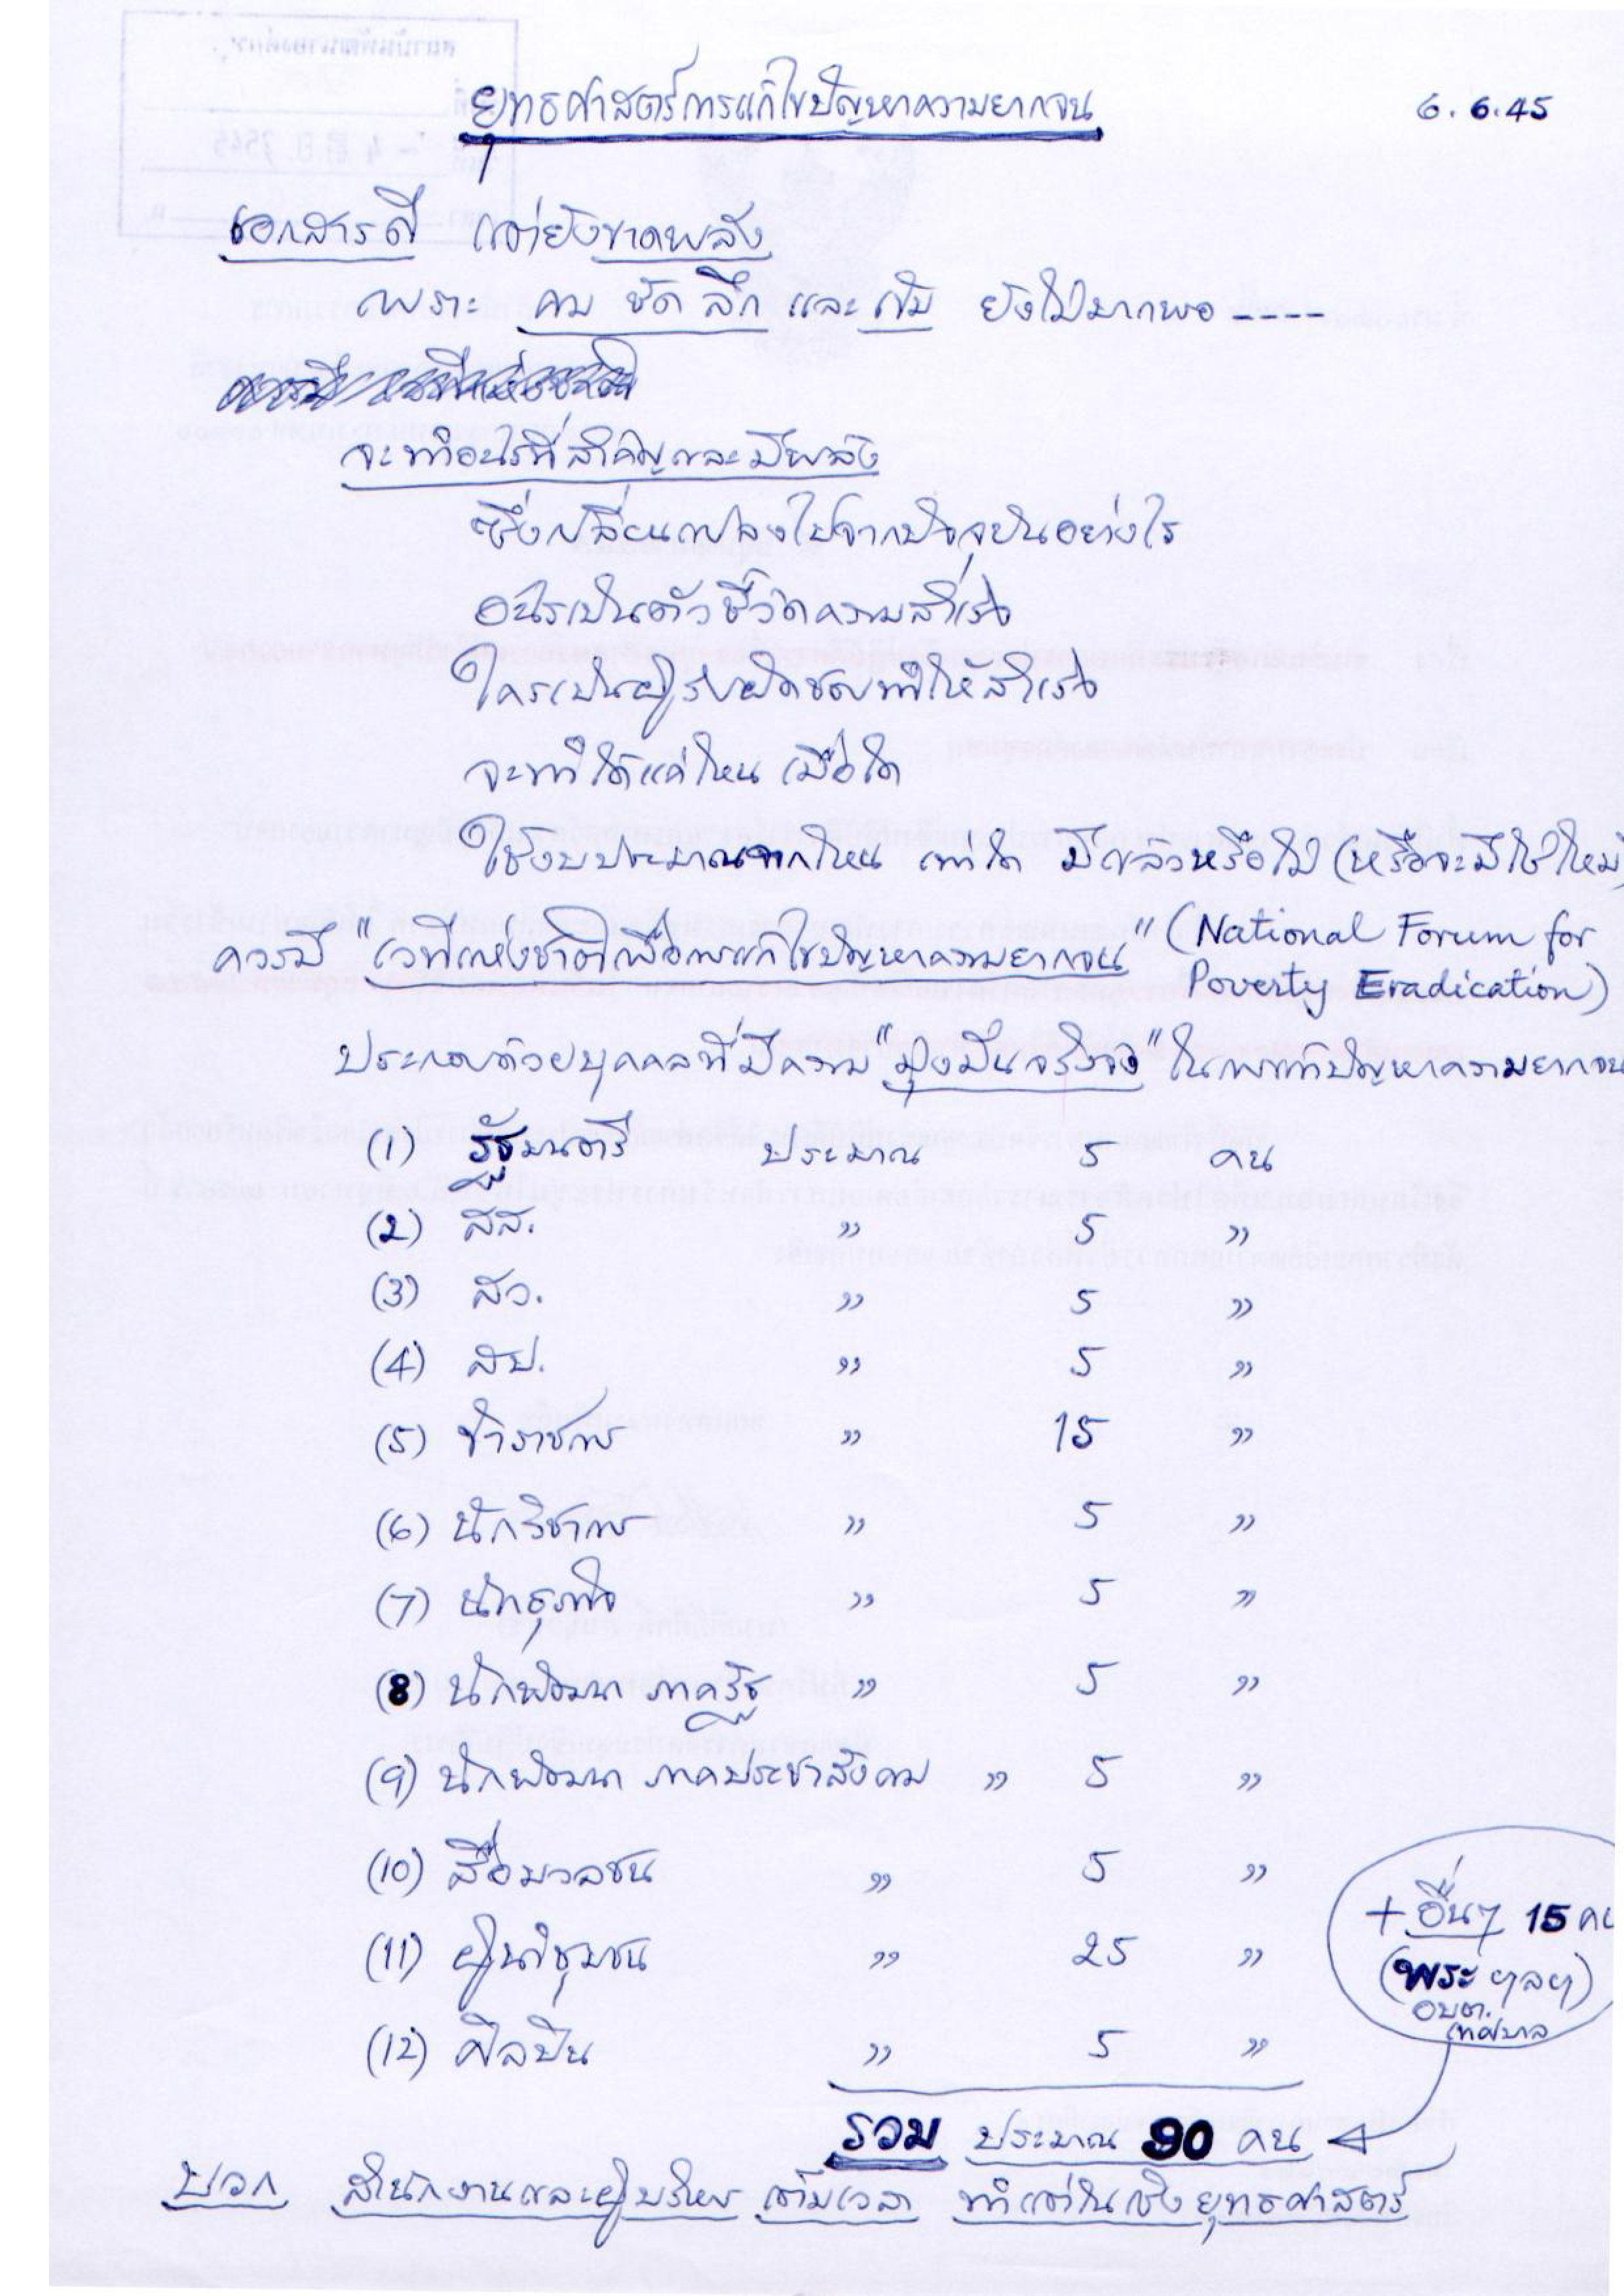 ยุทธศาสตร์การแก้ไขปัญหาความยากจน
6.6.45
เอกสารดี แต่ยังขาดพลัง
เพราะ คม ชัด ลึก และ เข้ม ยังไม่มากพอ ----
จะทำอะไรที่สำคัญและมีพลัง
ซึ่งเปลี่ยนแปลงไปจากปัจจุบันอย่างไร
อะไรเป็นตัวชี้วัดความสำเร็จ
ใครเป็นผู้รับผิดชอบทำให้สำเร็จ
จะทำได้แค่ไหน เมื่อใด
ใช้งบประมาณจากไหน เท่าใด มีแล้วหรือไม่ (หรือจะมีใช่ไหม)
ควรมี "เวทีแห่งชาติเพื่อการแก้ไขปัญหาความยากจน" (National Forum for
Poverty Eradication)
ประกอบด้วยบุคคลที่มีความ "มุ่งมั่นจริงจัง" ในการแก้ปัญหาความยากจน
(1) รัฐมนตรี ประมาณ 5 คน
(2) สส. " 5 "
(3) สว. " 5 "
(4) สป. " 5 "
(5) ข้าราชการ " 15 "
(6) นักวิชาการ " 5 "
(7) นักธุรกิจ " 5 "
(8) นักพัฒนา ภาครัฐ " 5 "
(9) นักพัฒนา ภาคประชาสังคม " 5 "
(10) สื่อมวลชน " 5 "
(11) ผู้นำชุมชน " 25 "
(12) ศิลปิน " 5 "
+ อื่นๆ 15 คน
(พระ ฯลฯ)
อบต.
เทศบาล
รวม ประมาณ 90 คน
บวก สำนักงานและผู้บริหาร เต็มเวลา ทำแต่ในเชิงยุทธศาสตร์